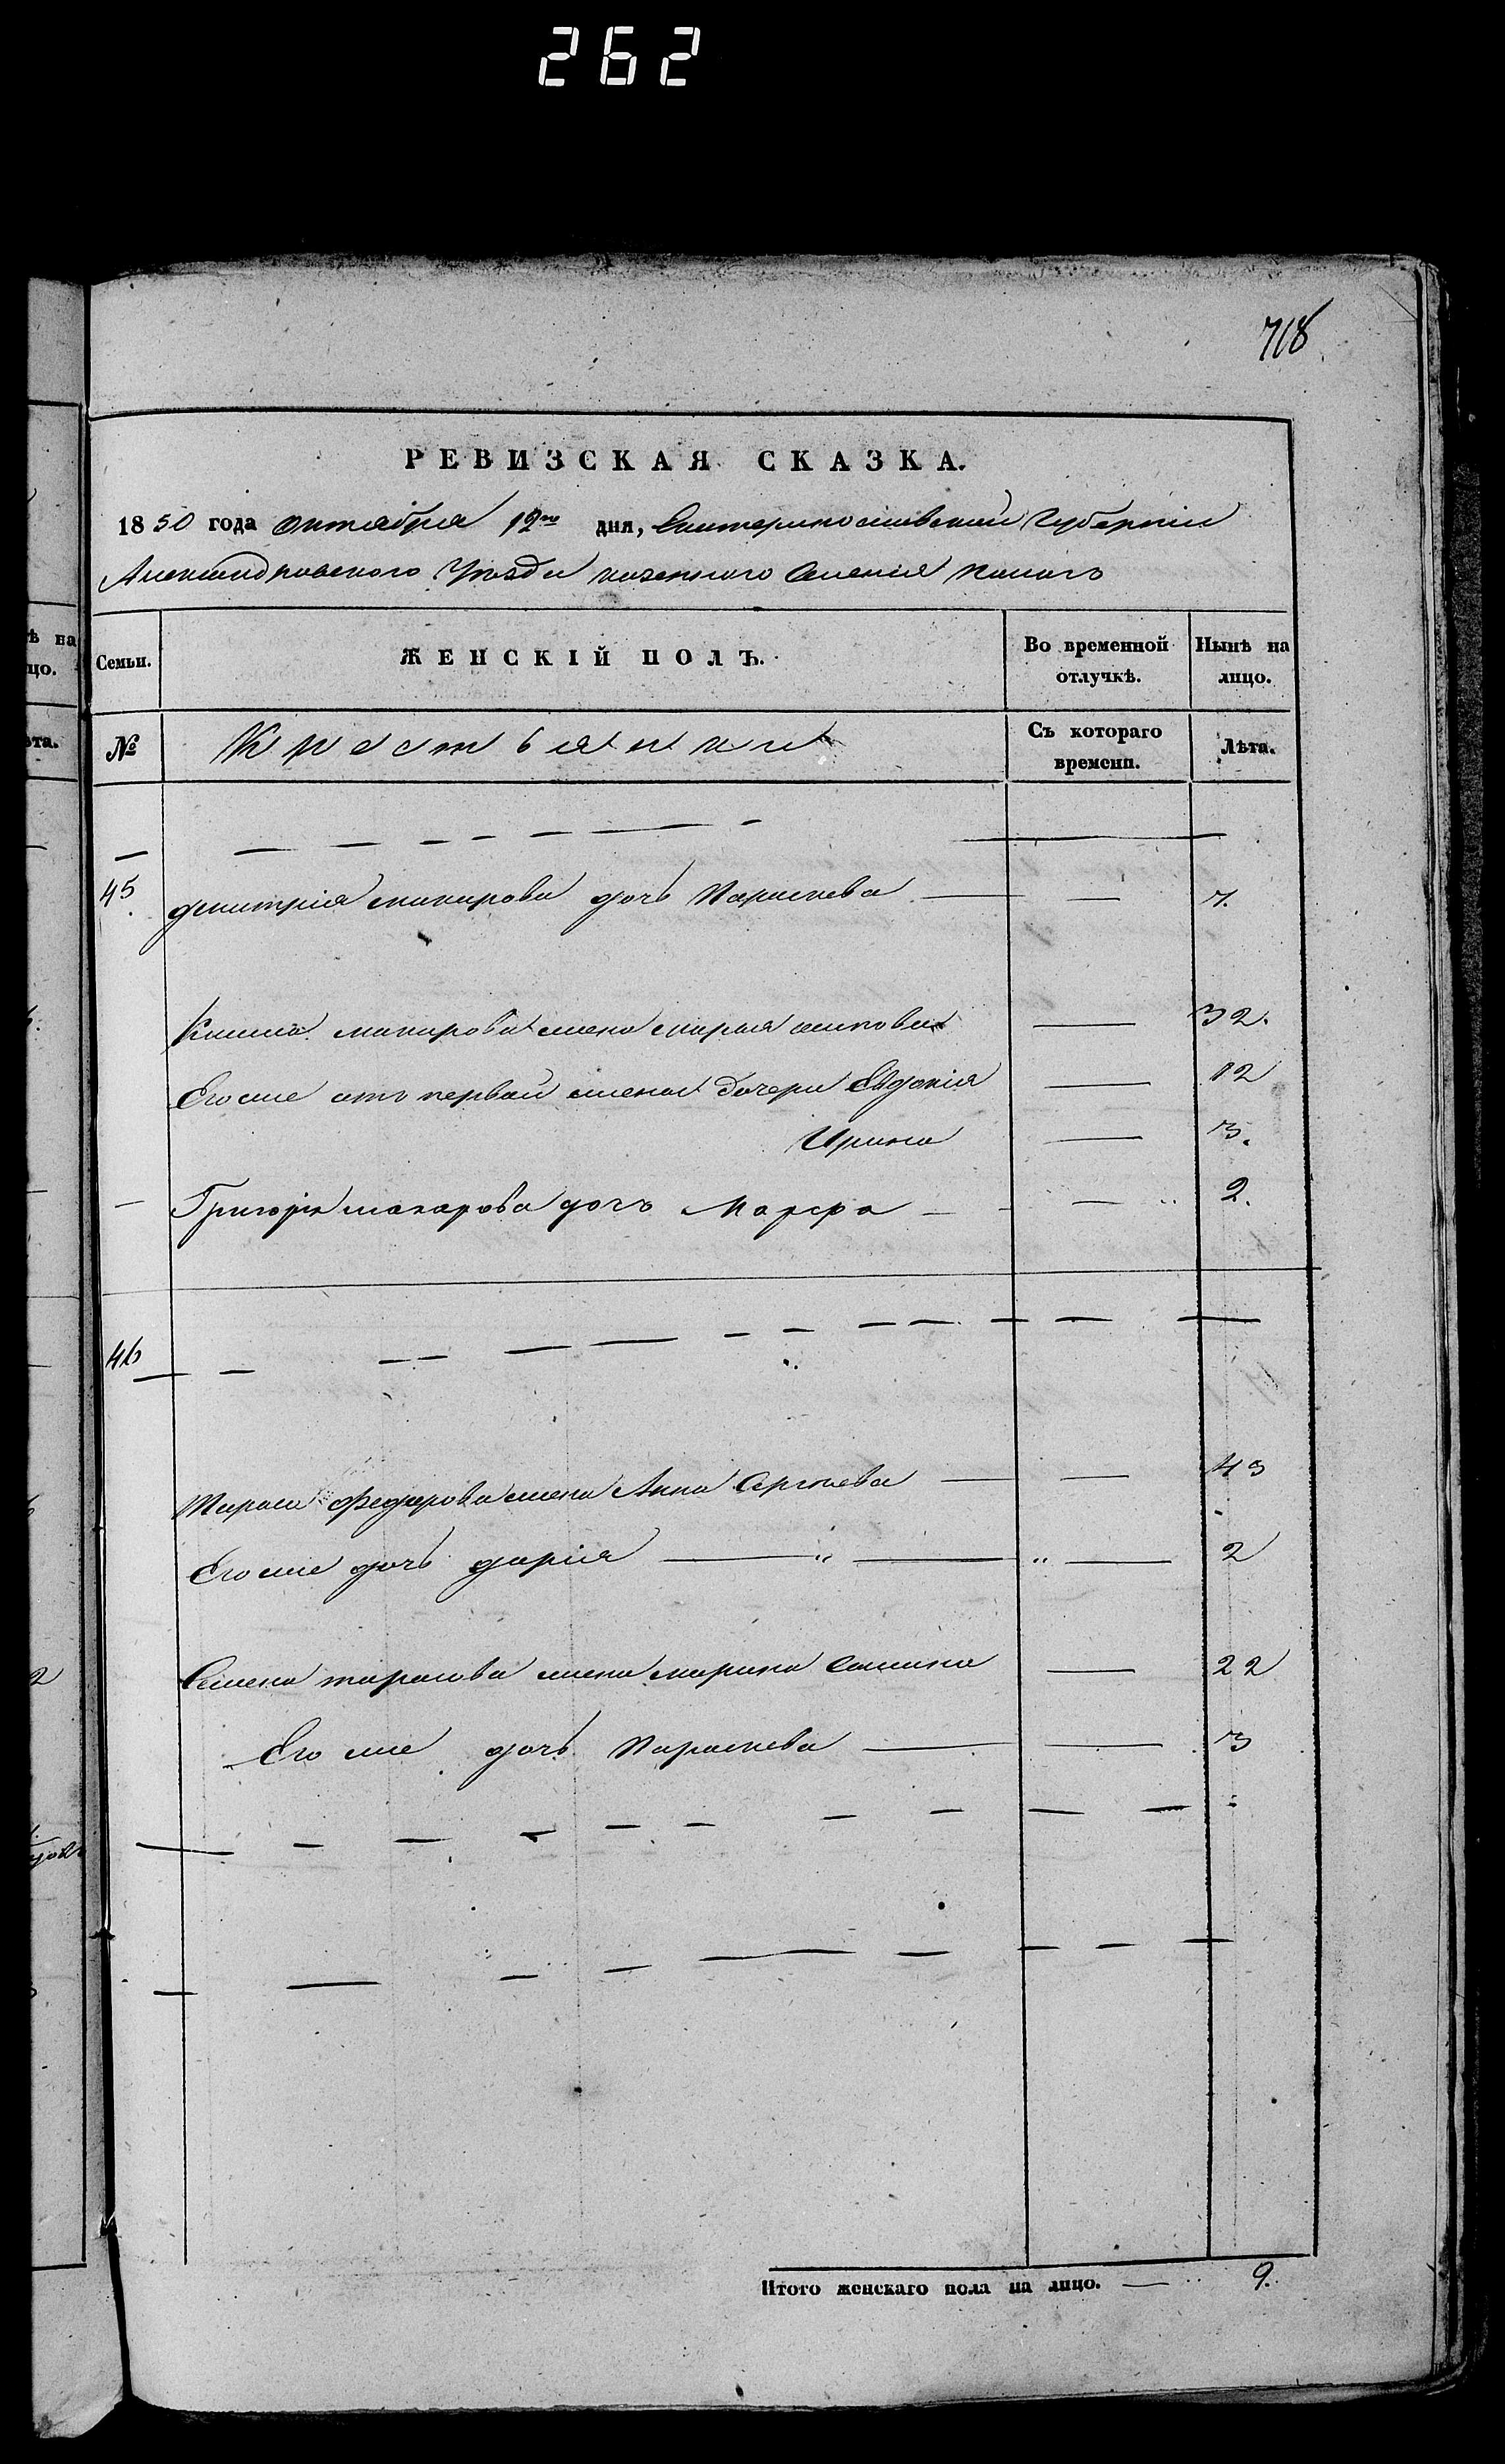 262
718
РЕВИЗСКАЯ СКАЗКА.
1850 года октября 12го дня, Екатеринославской Губернiи
Александровского Уезда казенного Селенiя Камыш
ѣ на
цо.
Семьи.
ЖЕНСКIЙ ПОЛЪ.
Во временной отлучкѣ.
Нынѣ на лицо.
ѣта.
№
Крестьянки
Съ котораго времени.
Лѣта.
45. Дмитрiя макарова дочь Параскева — — 7.
макарова жена марья — 32.
Его же отъ первой жены Дочери Евдокiя — 12
Ирина — 3.
Григорiя макарова дочь Марфа — — 2.
46
Тараса Федорова жена Анна Сергѣева — — 43
Его же дочь дарiя — " — " — 2
Семена тарасова жена марина — 22
Его же дочь Параскева — — 3
Итого женскаго пола на лицо. — 9.